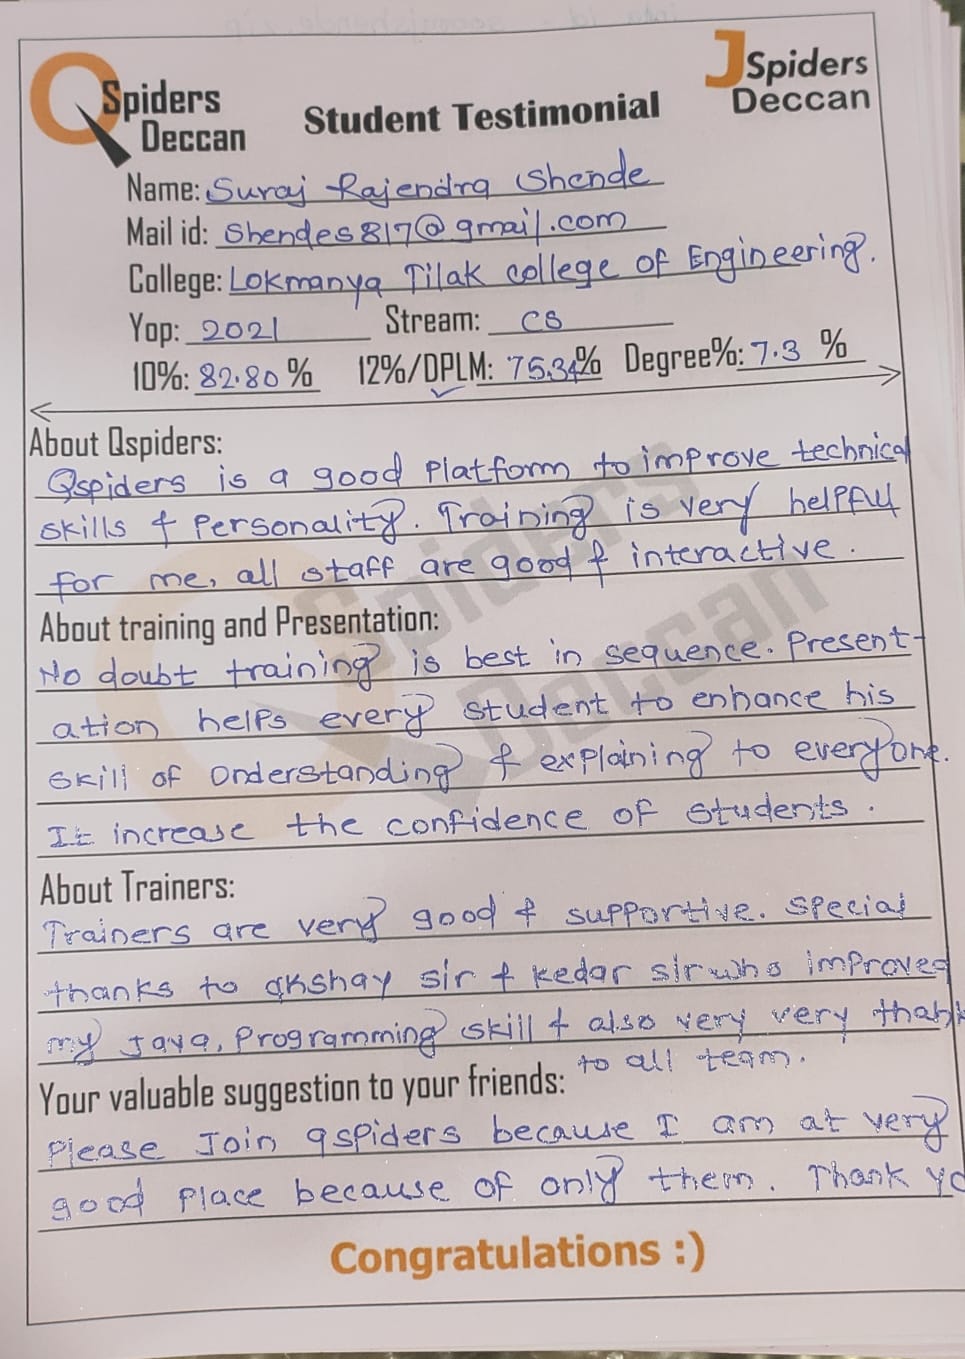 QSpiders
Deccan
JSpiders
Deccan
Student Testimonial
Name: Suraj Rajendra Shende
Mail id: Shendes817@gmail.com
College: Lokmanya Tilak college of Engineering.
Yop: 2021 Stream: CS
10%: 82.80 % 12%/DPLM: 75.34% Degree%: 7.3 %
About Qspiders:
Qspiders is a good Platform to improve technical
skills & Personality. Training is very helpful
for me, all staff are good & interactive.
About training and Presentation:
No doubt training is best in sequence. Present-
ation helps every student to enhance his
skill of Understanding & explaining to everyone.
It increase the confidence of students.
About Trainers:
Trainers are very good & supportive. special
thanks to akshay sir & kedar sir who improved
my Java, Programming skill & also very very thank
to all team.
Your valuable suggestion to your friends:
Please Join qspiders because I am at very
good Place because of only them. Thank yo
Congratulations :)
Spiders
Deccan